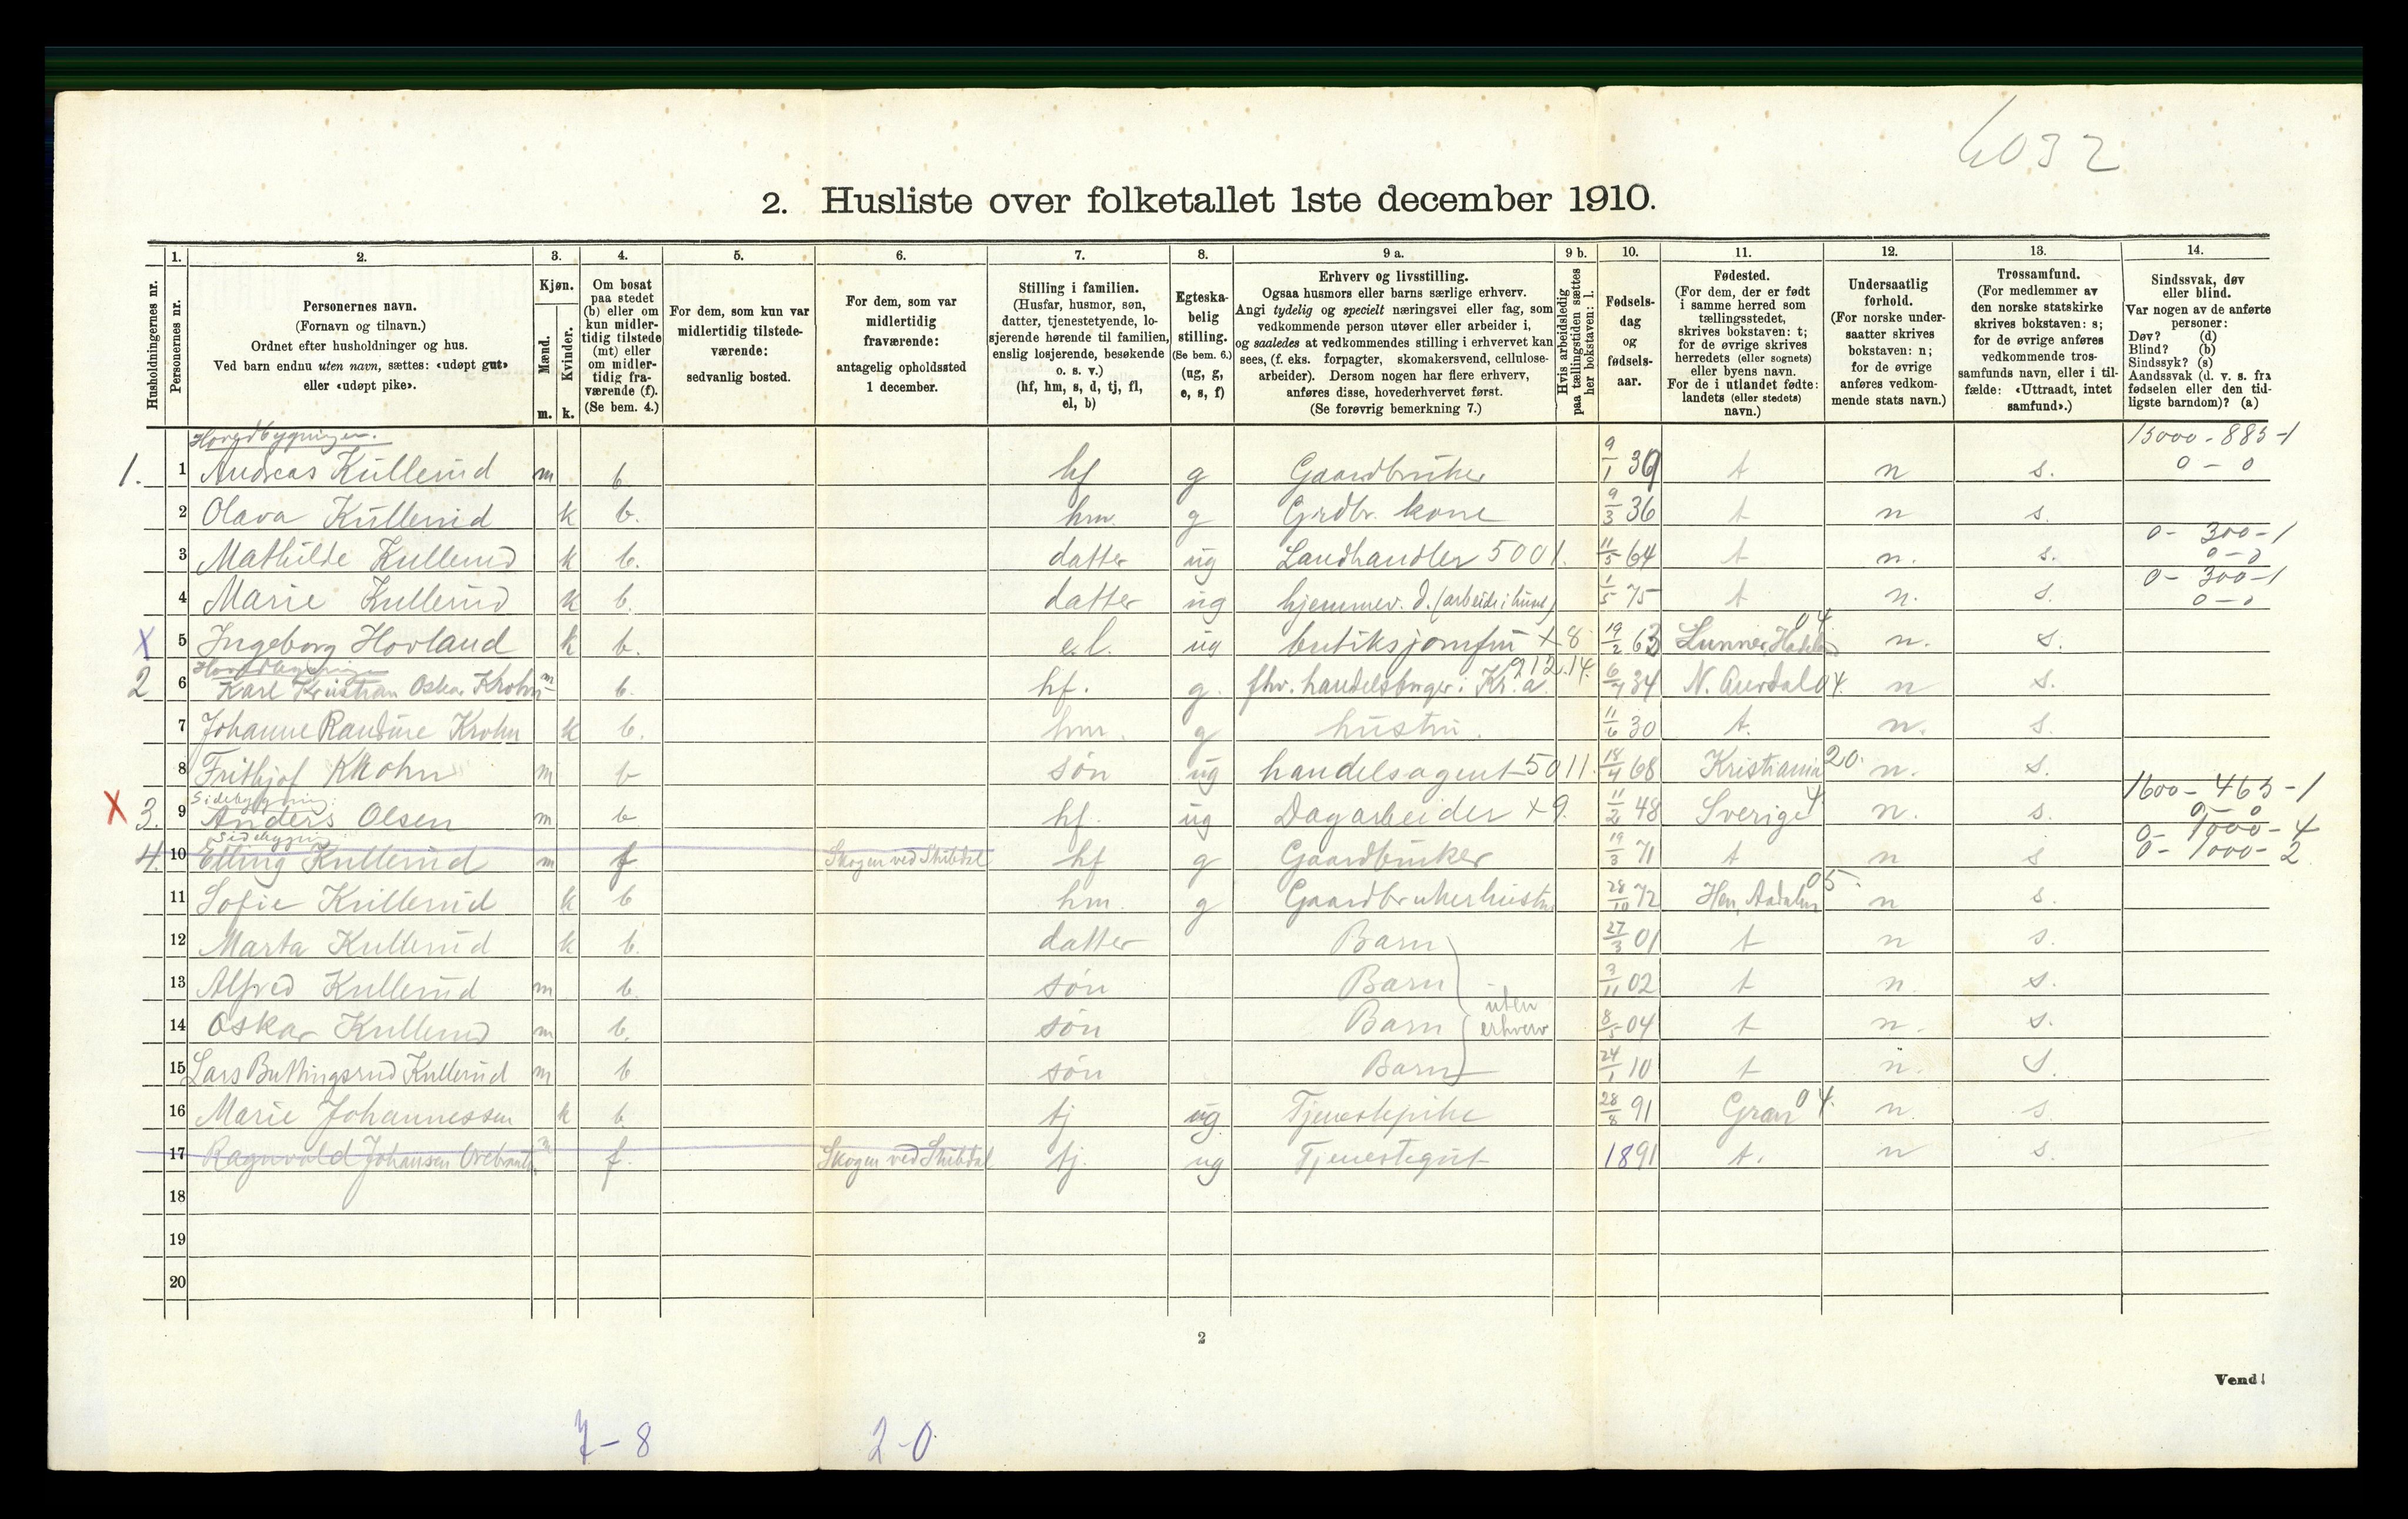 6032
2. Husliste over folketallet 1ste december 1910.
Husholdningernes nr.
1. Personernes nr.
2. Personernes navn.
(Fornavn og tilnavn.)
Ordnet efter husholdninger og hus.
Ved barn endnu uten navn, sættes: «udøpt gut»
eller «udøpt pike».
3. Kjøn.
Mænd. m.
Kvinder. k.
4. Om bosat
paa stedet
(b) eller om
kun midler-
tidig tilstede
(mt) eller
om midler-
tidig fra-
værende (f).
(Se bem. 4.)
5. For dem, som kun var
midlertidig tilstede-
værende:
sedvanlig bosted.
6. For dem, som var
midlertidig
fraværende:
antagelig opholdssted
1 december.
7. Stilling i familien.
(Husfar, husmor, søn,
datter, tjenestetyende, lo-
sjerende hørende til familien,
enslig losjerende, besøkende
o. s. v.)
(hf, hm, s, d, tj, fl,
el, b)
8. Egteska-
belig
stilling.
(Se bem. 6.)
(ug, g,
e, s, f)
9 a. Erhverv og livsstilling.
Ogsaa husmors eller barns særlige erhverv.
Angi tydelig og specielt næringsvei eller fag, som
vedkommende person utøver eller arbeider i,
og saaledes at vedkommendes stilling i erhvervet kan
sees, (f. eks. forpagter, skomakersvend, cellulose-
arbeider). Dersom nogen har flere erhverv,
anføres disse, hovederhvervet først.
(Se forøvrig bemerkning 7.)
9 b. Hvis arbeidsledig
paa tællingstiden sættes
her bokstaven: l.
10. Fødsels-
dag
og
fødsels-
aar.
11. Fødested.
(For dem, der er født
i samme herred som
tællingsstedet,
skrives bokstaven: t;
for de øvrige skrives
herredets (eller sognets)
eller byens navn.
For de i utlandet fødte:
landets (eller stedets)
navn.)
12. Undersaatlig
forhold.
(For norske under-
saatter skrives
bokstaven: n;
for de øvrige
anføres vedkom-
mende stats navn.)
13. Trossamfund.
(For medlemmer av
den norske statskirke
skrives bokstaven: s;
for de øvrige anføres
vedkommende tros-
samfunds navn, eller i til-
fælde: «Uttraadt, intet
samfund».)
14. Sindssvak, døv
eller blind.
Var nogen av de anførte
personer:
Døv? (d)
Blind? (b)
Sindssyk? (s)
Aandssvak (d. v. s. fra
fødselen eller den tid-
ligste barndom)? (a)
Hovedbygningen. 15000-885-1
1. 1 Andreas Kullerud m b. hf g Gaardbruker 9/1 39 t n s. 0-0
2 Olava Kullerud k b. hm. g Grdbr. kone 9/3 36 t n s.
0- 300-1
3 Mathilde Kullerud k b. datter ug Landhandler 5001. 11/5 64 t n. s. 0-0
0- 300-1
4 Marie Kullerud k b. datter ug hjemmev. d. (arbeide i huset) 1/5 75 t n. s. 0-0
X 5 Ingeborg Hovland k b. e.l. ug butiksjomfru x 8 19/2 63 Lunner, Hadeland 04. n. s.
Hovedbygningen
2 6 Karl Kristian Oskar Krohn m b. hf. g. fhv. handelsborger i Kr.a. 912.14. 34 N. Aurdal 04. n s.
7 Johanne Randine Krohn k b. hm. g hustru. 11/6 30 t. n. s.
8 Frithjof Krohn m b søn ug handelsagent 5011. 18/4 68 Kristiania 20. n. s.
Sidebygning. 1600-465-1
X 3. 9 Anders Olsen m b hf. ug Dagarbeider x 9. 11/2 48 Sverige 4 n. s. 0-0
Sidebygning 0- 1000- 4
4. 10 Elling Kullerud m f Skogen ved Stubdal hf g Gaardbruker 19/3 71 t n s 0- 1000- 2
11 Sofie Kullerud k b hm. g Gaardbrukerhustru 28/10 72 Hen, Aadalen 05. n s.
12 Marta Kullerud k b. datter Barn 27/3 01 t n s.
13 Alfred Kullerud m b. søn Barn 3/11 02 t n. s.
14 Oskar Kullerud m b. søn Barn uten erhverv 8/5 04 t n. s.
15 Lars Buttingsrud Kullerud m b søn Barn 24/1 10 t n. s.
16 Marie Johannessen k b. tj ug. Tjenestepike 28/8 91 Gran 04. n. s.
17 Ragnvald Johansen m f. Skogen ved Stubdal tj. ug Tjenestegut 1891 t. n s.
18
19
20
2
Vend!
7-8 2-0